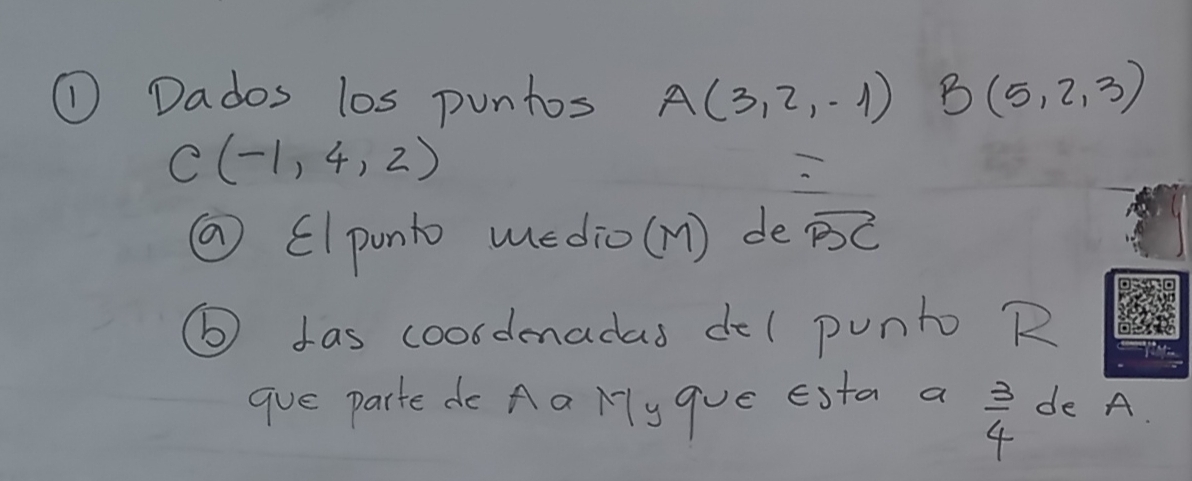 ① Dados los puntos A(3,2,-1) B(5,2,3)
C(-1,4,2)
ⓐ El punto medio (M) de BC
ⓑ Las coordenadas del punto R
que parte de A a M y que esta a 3/4 de A.